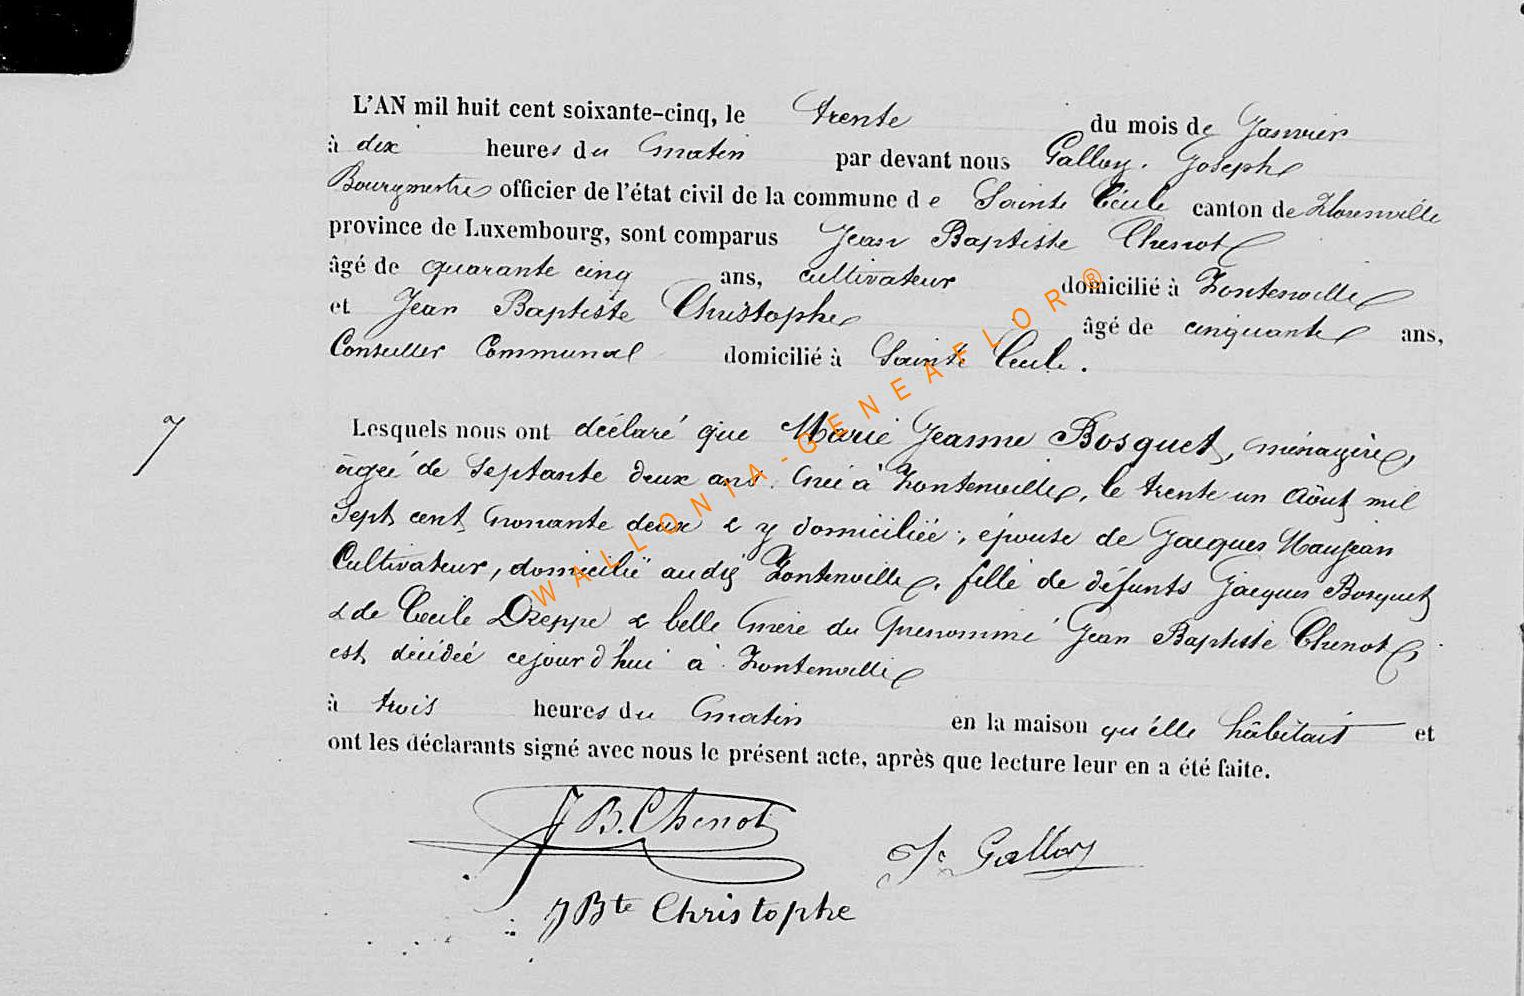 L'AN mil huit cent soixante-cinq, le trente du mois de Janvier
à dix heures du matin par devant nous Galloy. Joseph
Bourgmestre officier de l'état civil de la commune de Sainte Cécile canton de Florenville
province de Luxembourg, sont comparus Jean Baptiste Chenot
âgé de quarante cinq ans, cultivateur domicilié à Fontenoille
et Jean Baptiste Christophe âgé de cinquante ans,
Conseiller Communal domicilié à Sainte Cécile.
7
Lesquels nous ont déclaré que Marie Jeanne Bosquet, ménagère,
âgée de septante deux ans. née à Fontenoille, le trente un Août mil
Sept cent nonante deux & y domiciliée, épouse de Jacques Maujean
Cultivateur, domicilié audit Fontenoille, fille de défunts Jacques Bosquet
& de Cécile Dreppe & belle mère du prénommé Jean Baptiste Chenot,
est décédée cejourd'hui à Fontenoille
à trois heures du matin en la maison qu'elle habitait et
ont les déclarants signé avec nous le présent acte, après que lecture leur en a été faite.
JB. Chenot
J. Galloy
JBte Christophe
WALLONIA-GENEAFLOR®